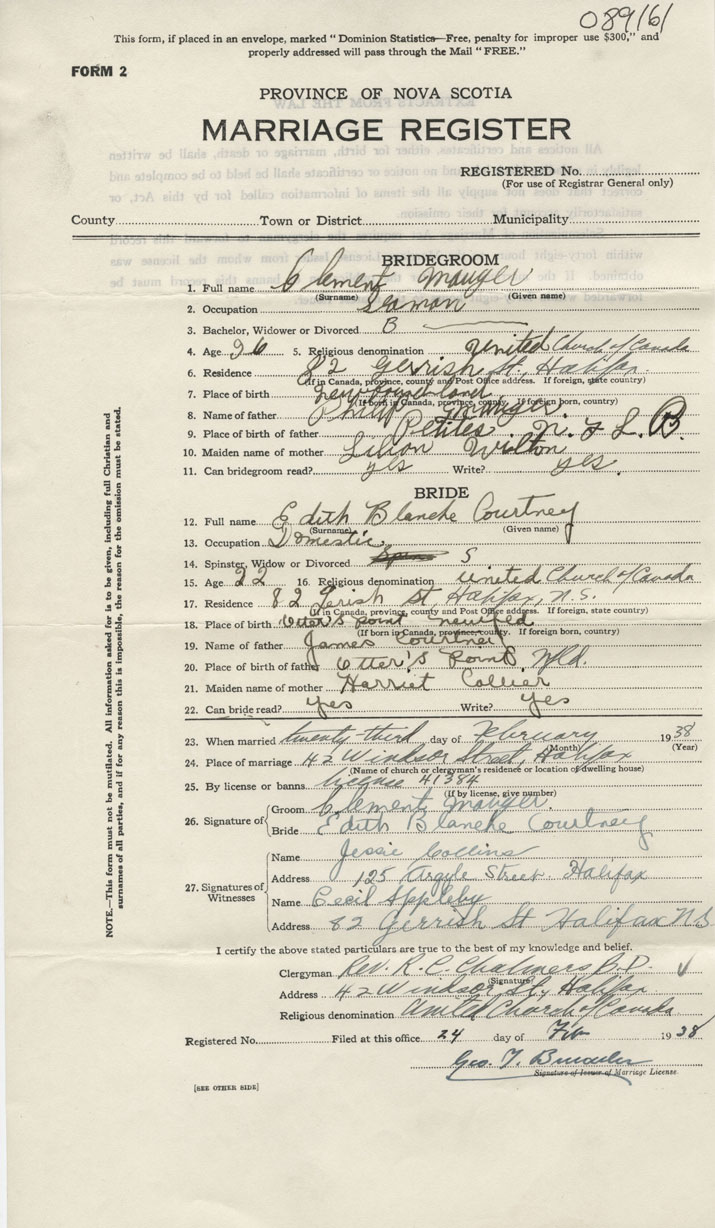 089161
This form, if placed in an envelope, marked "Dominion Statistics—Free, penalty for improper use $300," and
properly addressed will pass through the Mail "FREE."
FORM 2
PROVINCE OF NOVA SCOTIA
MARRIAGE REGISTER
REGISTERED No.
(For use of Registrar General only)
County Town or District Municipality
BRIDEGROOM
1. Full name Clement Mauger
(Surname) (Given name)
2. Occupation Seaman
3. Bachelor, Widower or Divorced B
4. Age 26 5. Religious denomination United Church of Canada
6. Residence 82 Gerrish St, Halifax
(If in Canada, province, county and Post Office address. If foreign, state country)
7. Place of birth Newfoundland
(If born in Canada, province, county. If foreign born, country)
8. Name of father Philip Mauger
9. Place of father Petites N. & L. B.
10. Maiden name of mother Lilian Wilton
11. Can bridegroom read? yes Write? yes.
BRIDE
12. Full name Edith Blanche Courtney
(Surname) (Given name)
13. Occupation Domestic
14. Spinster, Widow or Divorced S
15. Age 22 16. Religious denomination United Church of Canada
17. Residence 82 Gerish St, Halifax, N.S.
(If in Canada, province, county and Post Office address. If foreign, state country)
18. Place of birth Otter's Point Newfld
(If born in Canada, province, county. If foreign born, country)
19. Name of father James Courtney
20. Place of birth of father Otter's Point, Nfld.
21. Maiden name of mother Harriet Collier
22. Can bride read? yes Write? yes
23. When married twenty-third day of February 1938
(Month) (Year)
24. Place of marriage 42 Windsor Street, Halifax
(Name of church or clergyman's residence or location of dwelling house)
25. By license or banns license 41384
(If by license, give number)
26. Signature of Groom Clement Mauger
Bride Edith Blanche Courtney
27. Signatures of Witnesses
Name Jessie Collins
Address 125 Argyle Street. Halifax
Name Cecil Appleby
Address 82 Gerrish St Halifax N S
I certify the above stated particulars are true to the best of my knowledge and belief.
Clergyman Rev. R. C. Chalmers B.D.
(Signature)
Address 42 Windsor St., Halifax
Religious denomination United Church of Canada
Registered No. Filed at this office 24 day of Feb 1938
Geo. T.
Signature of Issuer of Marriage License.
[SEE OTHER SIDE]
NOTE.—This form must not be mutilated. All information asked for is to be given, including full Christian and
surnames of all parties, and if for any reason this is impossible, the reason for the omission must be stated.